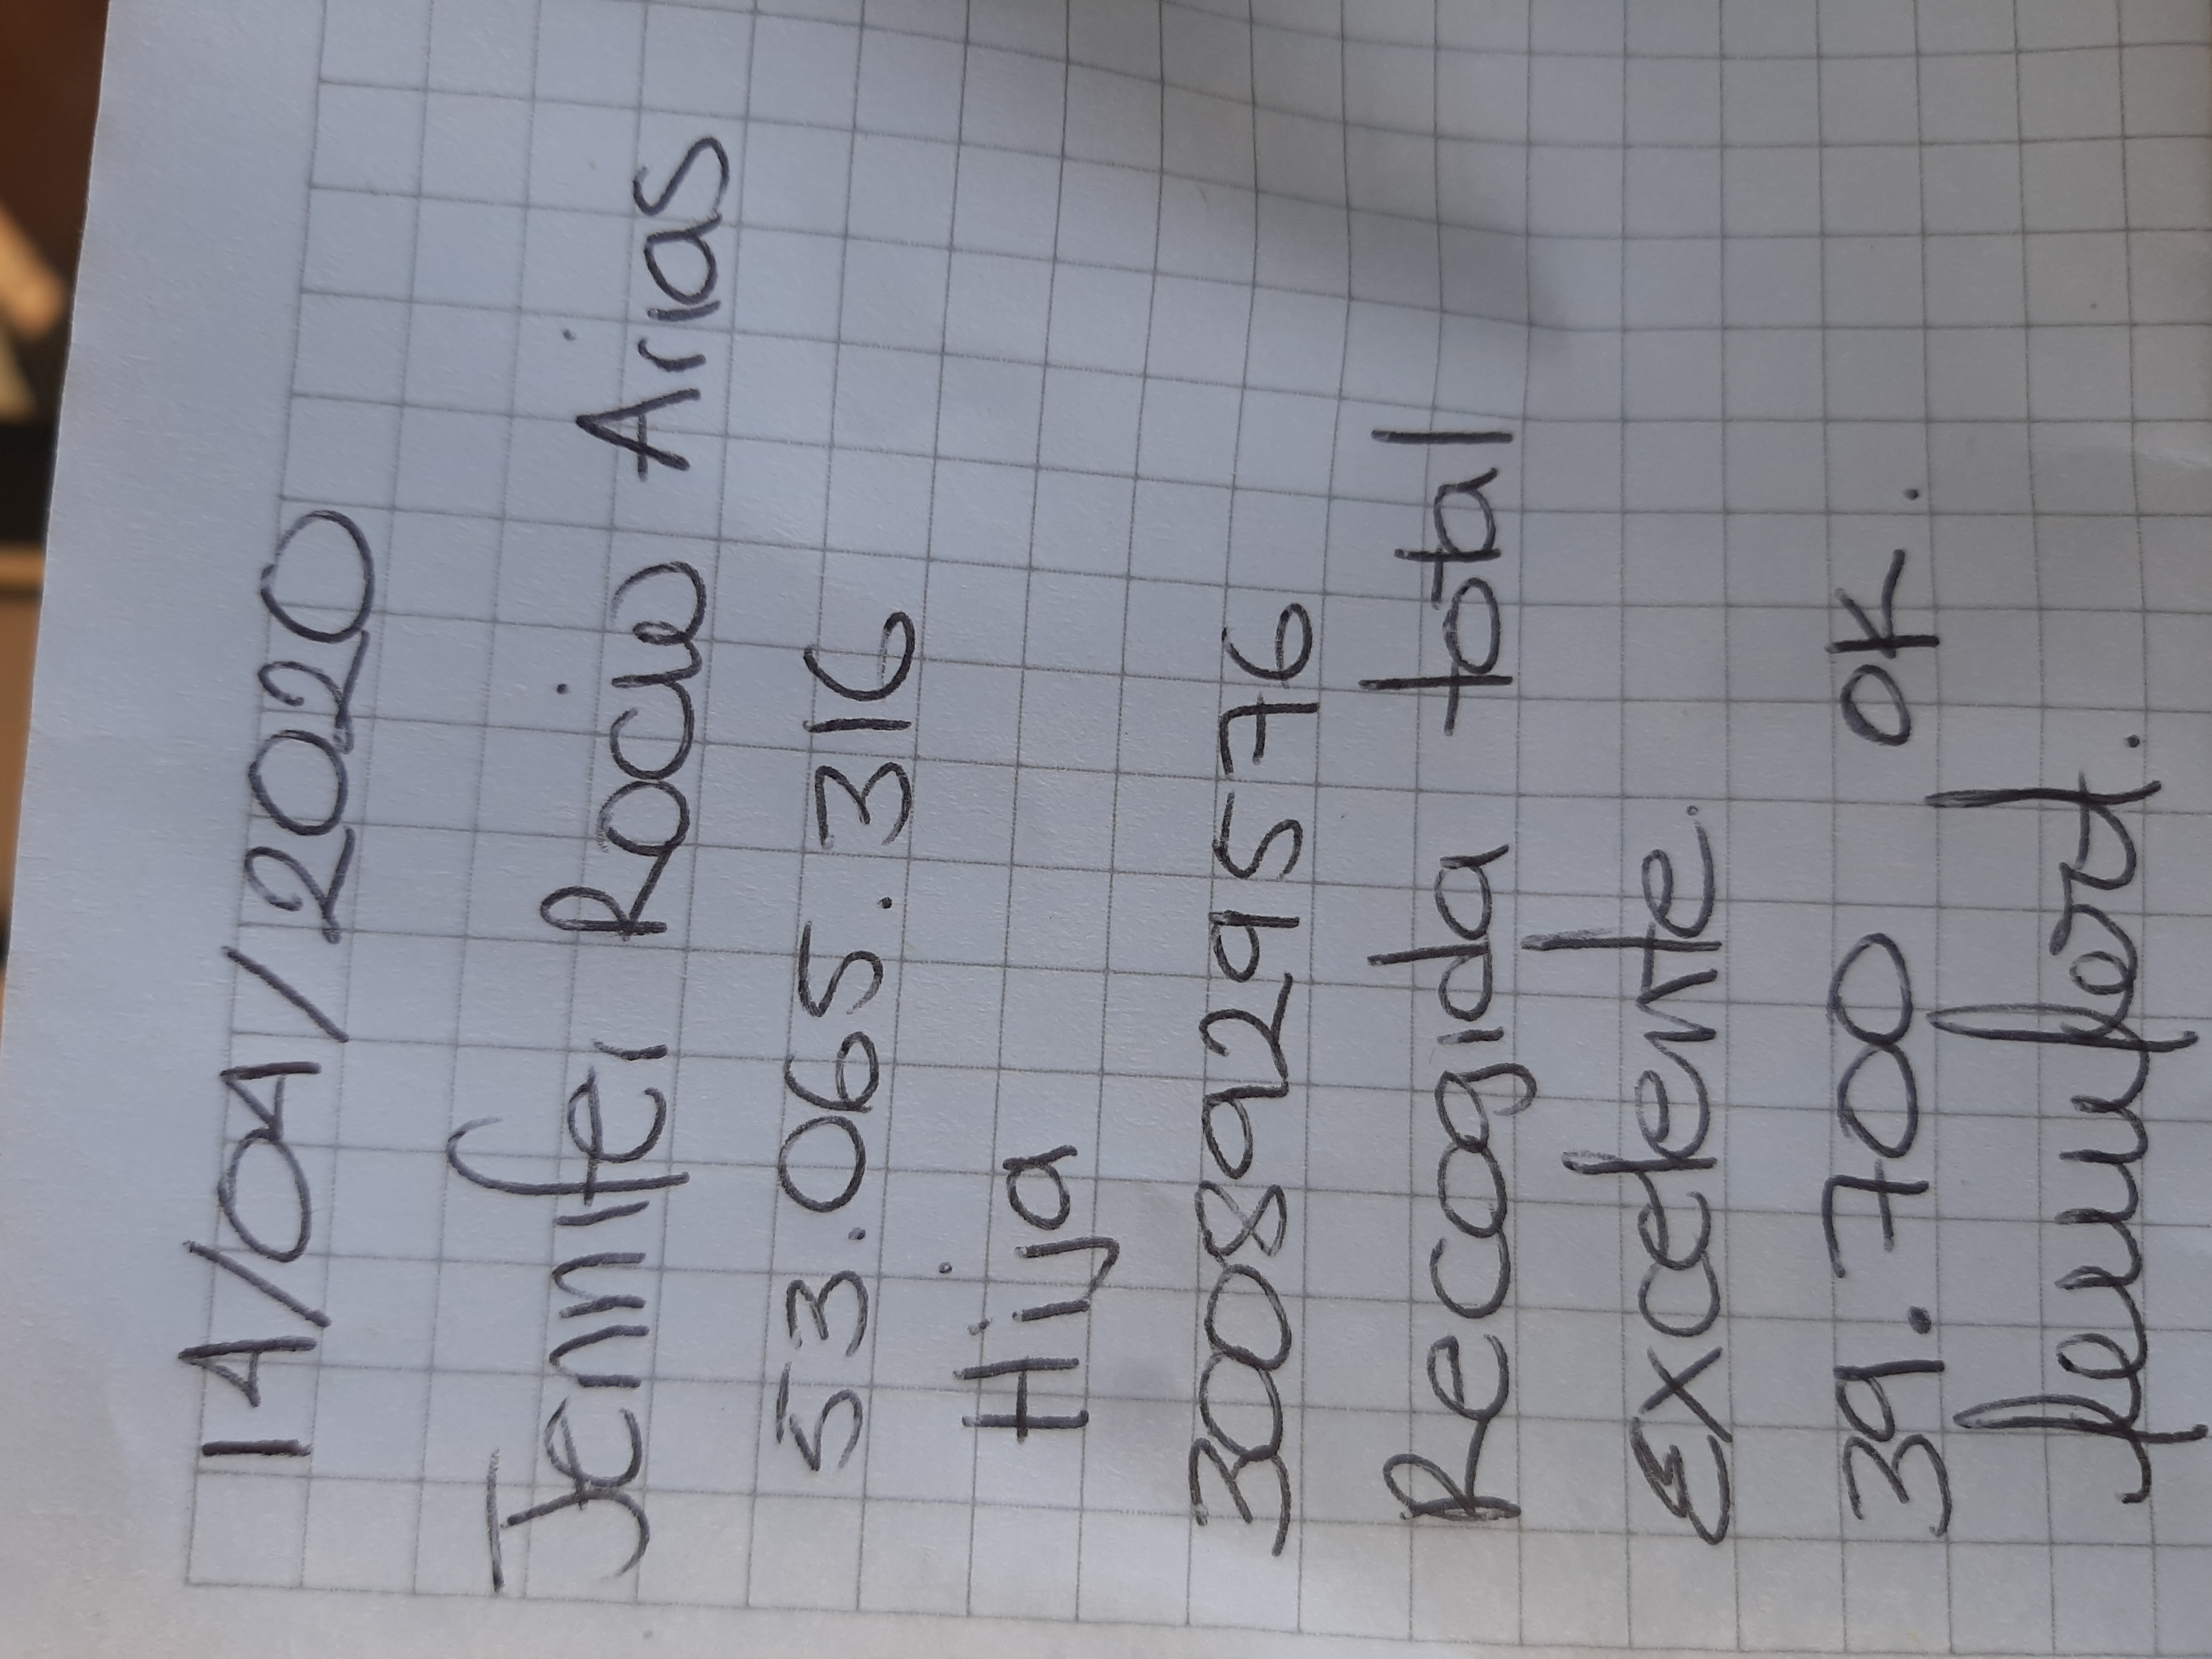 14/04/2020
Jennifer Rocio Arias
53.065.316
Hija
3008929576
Recogida total
Excelente.
39.700 ok.